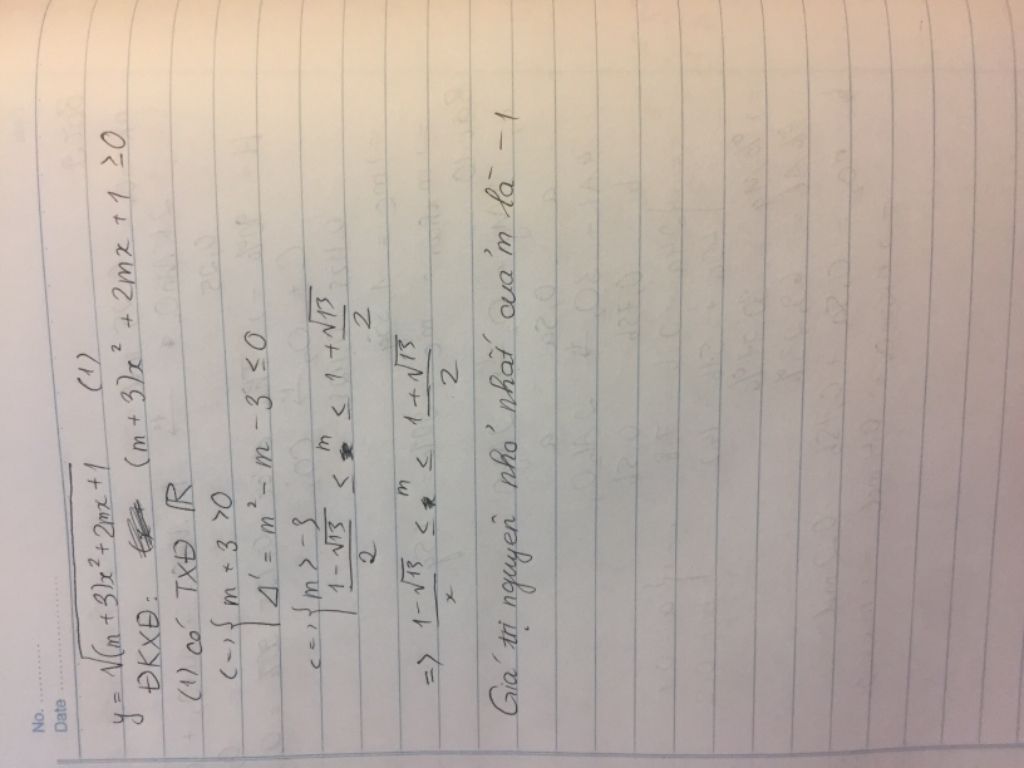 No. ............
Date ............
y = √(m+3)x² + 2mx + 1 (1)
ĐKXĐ: (m+3)x² + 2mx + 1 ≥ 0
(1) có TXĐ R
(=) { m + 3 > 0
Δ' = m² - m - 3 ≤ 0
(=) { m > -3
(1-√13)/2 ≤ m ≤ (1+√13)/2
=> (1-√13)/2 ≤ m ≤ (1+√13)/2
Giá trị nguyên nhỏ nhất của m là -1